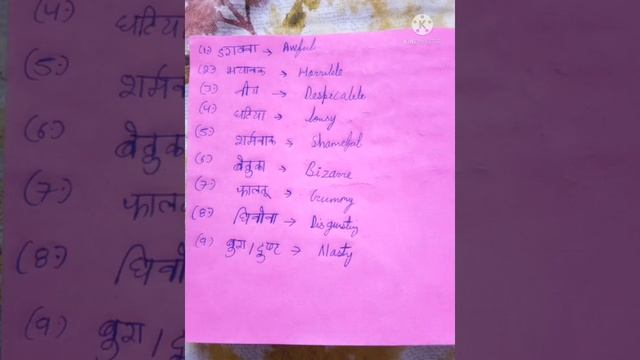 (1) डरावना → Awful
(2) भयानक → Horrible
(3) नीच → Despicable
(4) घटिया → lousy
(5) शर्मनाक → Shameful
(6) बेतुका → Bizarre
(7) फालतू → Crummy
(8) घिनौना → Disgusting
(9) बुरा / दुष्ट → Nasty